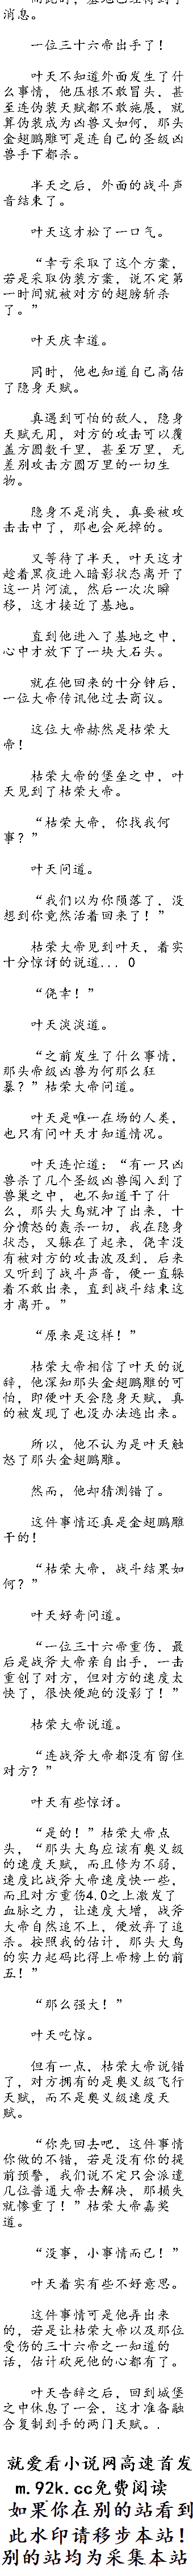 消息。
一位三十六帝出手了！
叶天不知道外面发生了什
么事情，他压根不敢冒头，甚
至连伪装天赋都不敢施展，就
算伪装成为凶兽又如何，那头
金翅鹏雕可是连自己的圣级凶
兽手下都杀。
半天之后，外面的战斗声
音结束了。
叶天这才松了一口气。
“幸亏采取了这个方案，
若是采取伪装方案，说不定第
一时间就被对方的翅膀斩杀
了。”
叶天庆幸道。
同时，他也知道自己高估
了隐身天赋。
真遇到可怕的敌人，隐身
天赋无用，对方的攻击可以覆
盖方圆数千里，甚至万里，无
差别攻击方圆万里的一切生
物。
隐身不是消失，真要被攻
击击中了，那也会死掉的。
又等待了半天，叶天这才
趁着黑夜进入暗影状态离开了
这一片河流，然后一次次瞬
移，这才接近了基地。
直到他进入了基地之中，
心中才放下了一块大石头。
就在他回来的十分钟后，
一位大帝传讯他过去商议。
这位大帝赫然是枯荣大
帝！
枯荣大帝的堡垒之中，叶
天见到了枯荣大帝。
“枯荣大帝，你找我何
事？”
叶天问道。
“我们以为你陨落了，没
想到你竟然活着回来了！”
枯荣大帝见到叶天，着实
十分惊讶的说道... 0
“侥幸！”
叶天淡淡道。
“之前发生了什么事情，
那头帝级凶兽为何那么狂
暴？”枯荣大帝问道。
叶天是唯一在场的人类，
也只有问叶天才知道情况。
叶天连忙道：“有一只凶
兽杀了几个圣级凶兽闯入到了
兽巢之中，也不知道干了什
么，那头大鸟就冲了出来，十
分愤怒的轰杀一切，我在隐身
状态，又躲在了起来，侥幸没
有被对方的攻击波及到，后来
又听到了战斗声音，便一直躲
着不敢出来，直到战斗结束这
才离开。”
“原来是这样！”
枯荣大帝相信了叶天的说
辞，他深知那头圣级金翅鹏雕的可
怕，即便叶天会隐身天赋，真
的被发现了也没办法逃出来。
所以，他不认为是叶天触
怒了那头金翅鹏雕。
然而，他却猜测错了。
这件事情还真是金翅鹏雕
干的！
“枯荣大帝，战斗结果如
何？”
叶天好奇问道。
“一位三十六帝重伤，最
后是战斧大帝亲自出手，一击
重创了对方，但对方的速度太
快了，很快便跑的没影了！”
枯荣大帝说道。
“连战斧大帝都没有留住
对方？”
叶天有些惊讶。
“是的！”枯荣大帝点
头，“那头大鸟应该有奥义级
的速度天赋，而且修为不弱，
速度比战斧大帝速度快一些，
而且对方重伤4.0之上激发了
血脉之力，让速度大增，战斧
大帝自然追不上，便放弃了追
杀。按照我的估计，那头大鸟
的实力起码比得上帝榜上的前
五！”
“那么强大！”
叶天吃惊。
但有一点，枯荣大帝说错
了，对方拥有的是奥义级飞行
天赋，而不是奥义级速度天
赋。
“你先回去吧，这件事情
你做的不错，若是没有你的提
前预警，我们说不定只会派遣
几位普通大帝去解决，那损失
就惨重了！”枯荣大帝嘉奖
道。
“没事，小事情而已！”
叶天着实有些不好意思。
这件事情可是他弄出来
的，若是让枯荣大帝以及那位
受伤的三十六帝之一知道的
话，估计砍死他的心都有了。
叶天告辞之后，回到城堡
之中休息了一会，这才准备融
合复制到手的两门天赋。.
就爱看小说网高速首发
m.92k.cc免费阅读
如果你在别的站看到
此水印请移步本站！
别的站均为采集本站